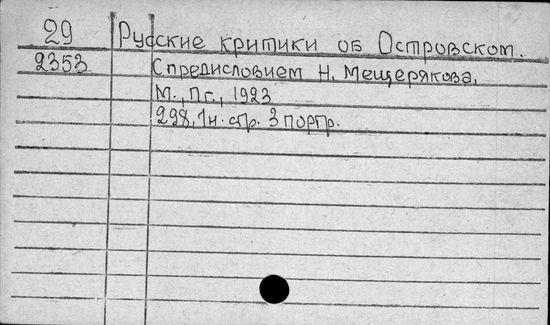 29 Русские критики об Островском.
2353 С предисловием Н. Мещерякова,
М., Пг., 1923
298, 1н. стр. 3 портр.